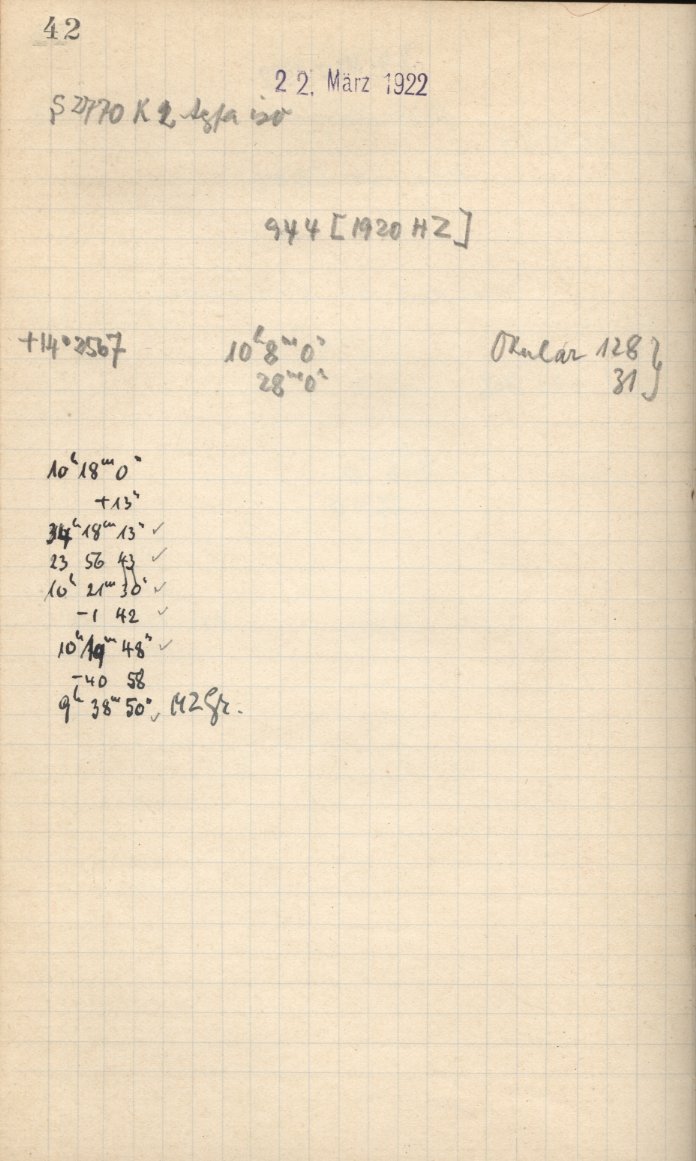 42
22. März 1922
S 2770 K 2 Agfa iso
944 [1920 HZ]
+14°2567 10ʰ8ᵐ0ˢ Okular 128 }
28ᵐ0ˢ 31 }
10ʰ18ᵐ0ˢ
+13ˢ
34ʰ18ᵐ13ˢ ✓
23 56 43 ✓
10ʰ 21ᵐ30ˢ ✓
-1 42 ✓
10ʰ19ᵐ48ˢ ✓
-40 58
9ʰ 38ᵐ50ˢ ✓ MZGr.